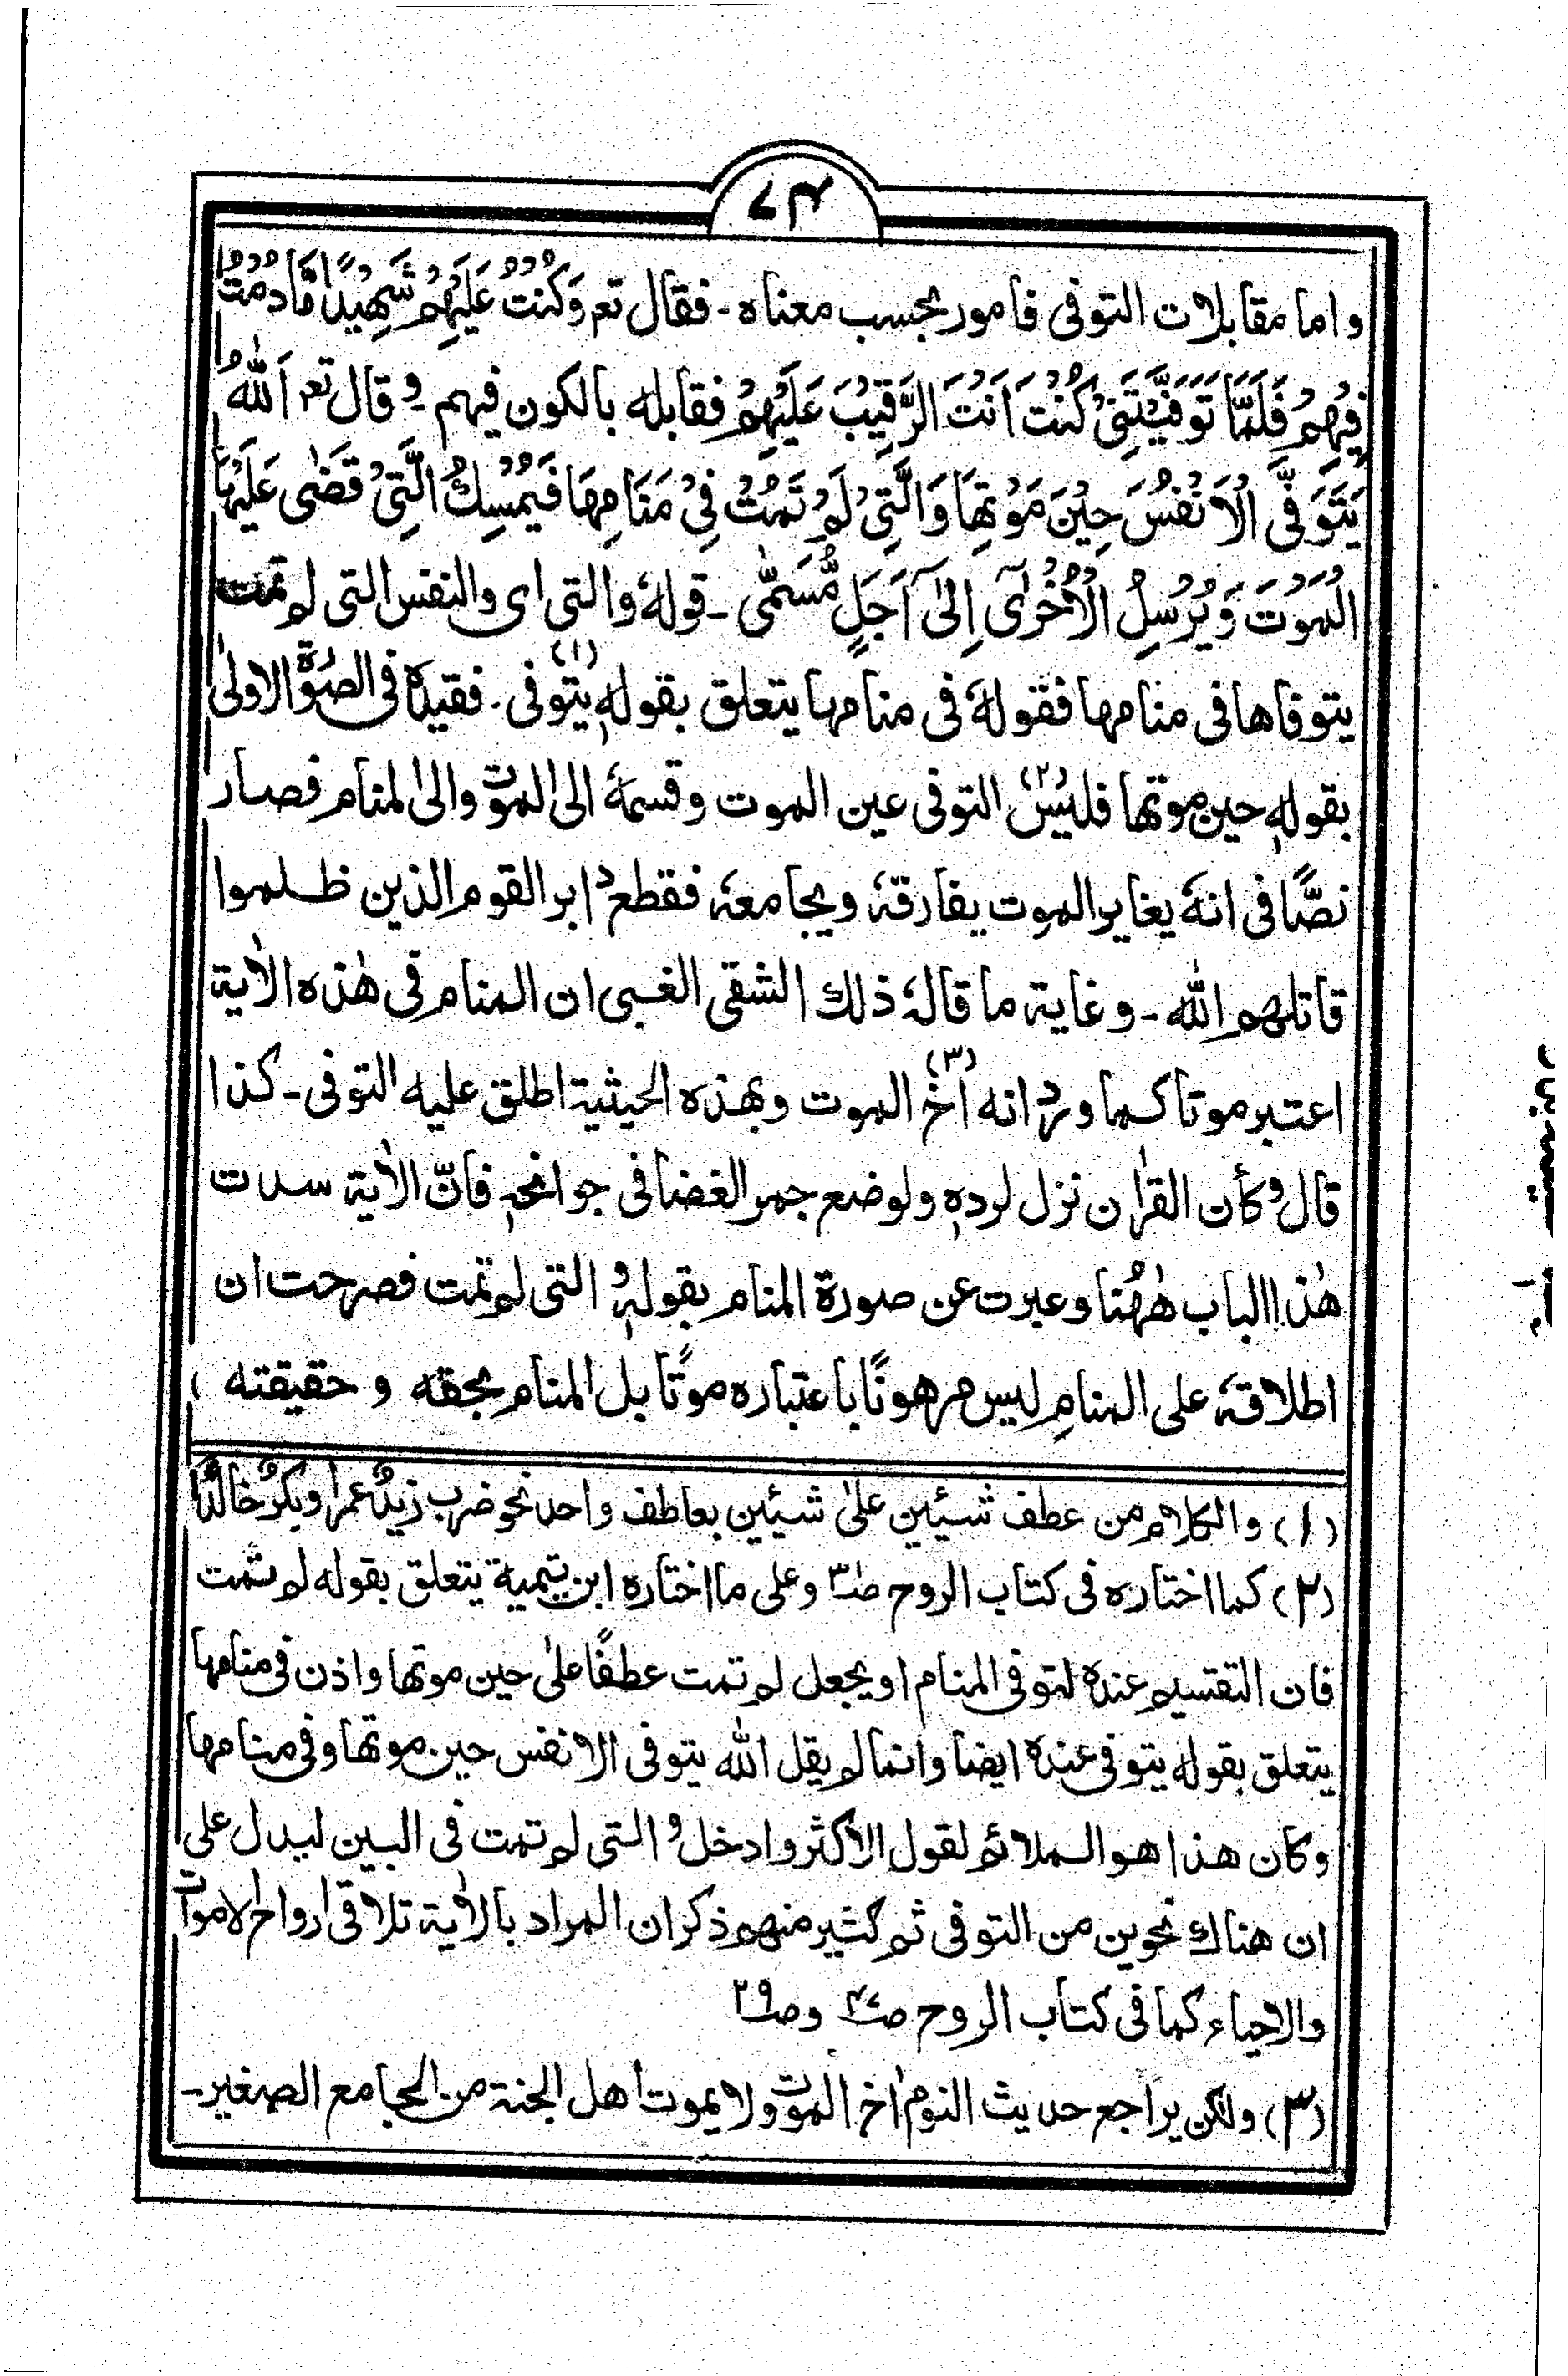 ٧٤
واما مقابلات التوفی فامور بحسب معناه - فقال تعم وَكُنْتُ عَلَيْهِمْ شَهِيْدًا مَّا دُمْتُ
فِيْهِمْ فَلَمَّا تَوَفَّيْتَنِيْ كُنْتَ اَنْتَ الرَّقِيْبَ عَلَيْهِمْ فقابله بالكون فيهم - وقال تعم اَللّٰهُ
يَتَوَفَّى الْاَنْفُسَ حِيْنَ مَوْتِهَا وَالَّتِيْ لَمْ تَمُتْ فِيْ مَنَامِهَا فَيُمْسِكُ الَّتِيْ قَضٰى عَلَيْهَا
الْمَوْتَ وَيُرْسِلُ الْاُخْرٰٓى اِلٰٓى اَجَلٍ مُّسَمًّى - قولهٗ والتی ای والنفس التی لم تمت
يتوفاها فی منامها فقولهٗ فی منامها يتعلق بقولهٖ يتوفی (١) - فقيده فی الصورة الاولیٰ
بقولهٖ حين موتها فليس (٢) التوفی عين الموت وقسمهٗ الی الموت والی المنام فصار
نصًّا فی انهٗ يغاير الموت يفارقهٗ ويجامعهٗ فقطع دابر القوم الذين ظلموا
قاتلهم الله - وغاية ما قالهٗ ذلك الشقی الغبی ان المنام فی هٰذه الاٰية
اعتبر موتا كما ورد انه اخ (٣) الموت وبهذه الحيثية اطلق عليه التوفی - كذا
قال وكأن القراٰن نزل لردهٖ ولوضع جمر الغضا فی جوانحهٖ فانّ الاٰية سدت
هٰذا الباب هٰهُنا وعبرت عن صورة المنام بقولهٖ والتی لم تمت فصرحت ان
اطلاقهٗ علی المنامِ ليس مرهونًا باعتباره موتًا بل المنام بحقه و حقيقته
(١) والكلام من عطف شيئين علیٰ شيئين بعاطف واحد نحو ضرب زيدٌ عمرا وبكرٌ خالدًا
(٢) كما اختاره فی كتاب الروح صـ٣ وعلی ما اختاره ابن تيمية يتعلق بقوله لم تمت
فان التقسيم عنده لتوفی المنام او يجعل لم تمت عطفًا علیٰ حين موتها واذن فی منامها
يتعلق بقوله يتوفی عنده ايضا وانما لم يقل الله يتوفی الانفس حين موتها وفی منامها
وكان هذا هو الملائم لقول الاكثر وادخل والتی لم تمت فی البين ليدل علی
ان هناك نحوين من التوفی ثم كثير منهم ذكر ان المراد بالاٰية تلاقی ارواح الاموات
والاحياء كما فی كتاب الروح صـ وصـ
(٣) ولكن يراجع حديث النوم اخ الموت ولا يموت اهل الجنة من الجامع الصغير -